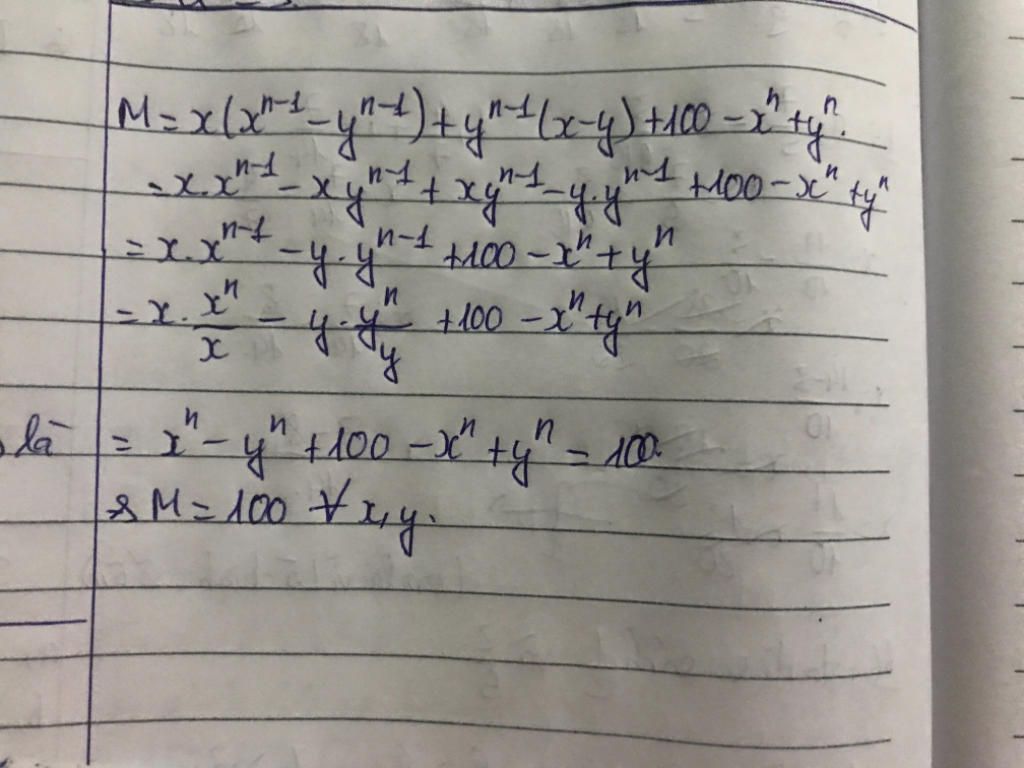 M = x(xⁿ⁻¹ - yⁿ⁻¹) + yⁿ⁻¹(x-y) + 100 - xⁿ + yⁿ.
= x.xⁿ⁻¹ - xyⁿ⁻¹ + xyⁿ⁻¹ - y.yⁿ⁻¹ + 100 - xⁿ + yⁿ
= x.xⁿ⁻¹ - y.yⁿ⁻¹ + 100 - xⁿ + yⁿ
= x.xⁿ/x - y.yⁿ/y + 100 - xⁿ + yⁿ
là = xⁿ - yⁿ + 100 - xⁿ + yⁿ = 100.
M = 100 ∀ x, y.